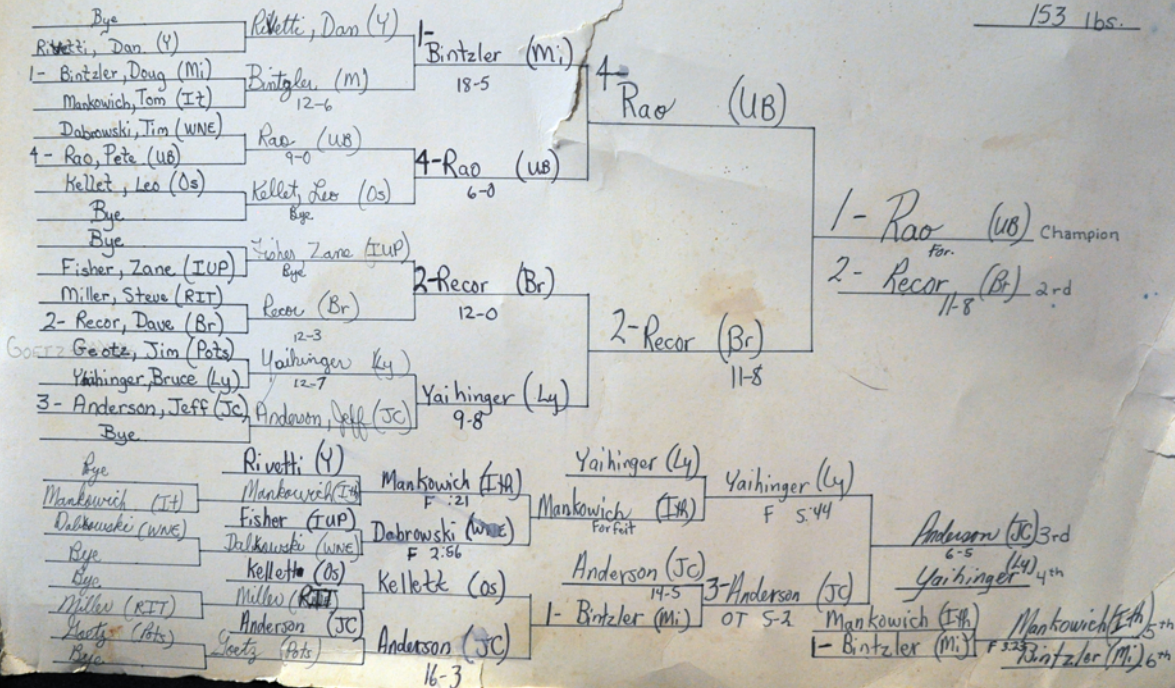 153 lbs.
Bye
Rivetti, Dan (Y)
1- Bintzler, Doug (Mi)
Mankowich, Tom (It)
Dabrowski, Tim (WNE)
4- Rao, Pete (UB)
Kellet, Leo (Os)
Bye
Bye
Fisher, Zane (IUP)
Miller, Steve (RIT)
2- Recor, Dave (Br)
GOETZ Geotz, Jim (Pots)
Yaihinger, Bruce (Ly)
3- Anderson, Jeff (JC)
Bye
Rivetti, Dan (Y)
Bintzler (M)
12-6
Rao (UB)
9-0
Kellet, Leo (Os)
Bye
Fisher Zane (IUP)
Bye
Recor (Br)
12-3
Yaihinger (Ly)
12-7
Anderson, Jeff (JC)
1- Bintzler (Mi)
18-5
4-Rao (UB)
6-0
2-Recor (Br)
12-0
Yaihinger (Ly)
9-8
4- Rao (UB)
2-Recor (Br)
11-8
1- Rao (UB) Champion
For.
2- Recor, (Br) 2rd
11-8
Bye
Mankowich (It)
Dabkowski (WNE)
Bye
Bye
Miller (RIT)
Goetz (Pots)
Bye
Rivetti (Y)
Mankowich (Ith)
Fisher (IUP)
Dalkowski (WNE)
Kellett (Os)
Miller (RIT)
Anderson (JC)
Goetz (Pots)
Mankowich (Ith)
F :21
Dabrowski (WNE)
F 2:56
Kellett (Os)
Anderson (JC)
16-3
Yaihinger (Ly)
Mankowich (Ith)
Forfeit
Anderson (JC)
14-5
1- Bintzler (Mi)
Yaihinger (Ly)
F 5:44
3-Anderson (JC)
OT 5-2
Anderson (JC) 3rd
6-5
Yaihinger (Ly) 4th
Mankowich (Ith)
1- Bintzler (Mi)
Mankowich (Ith) 5th
F 3:23
Bintzler (Mi) 6th